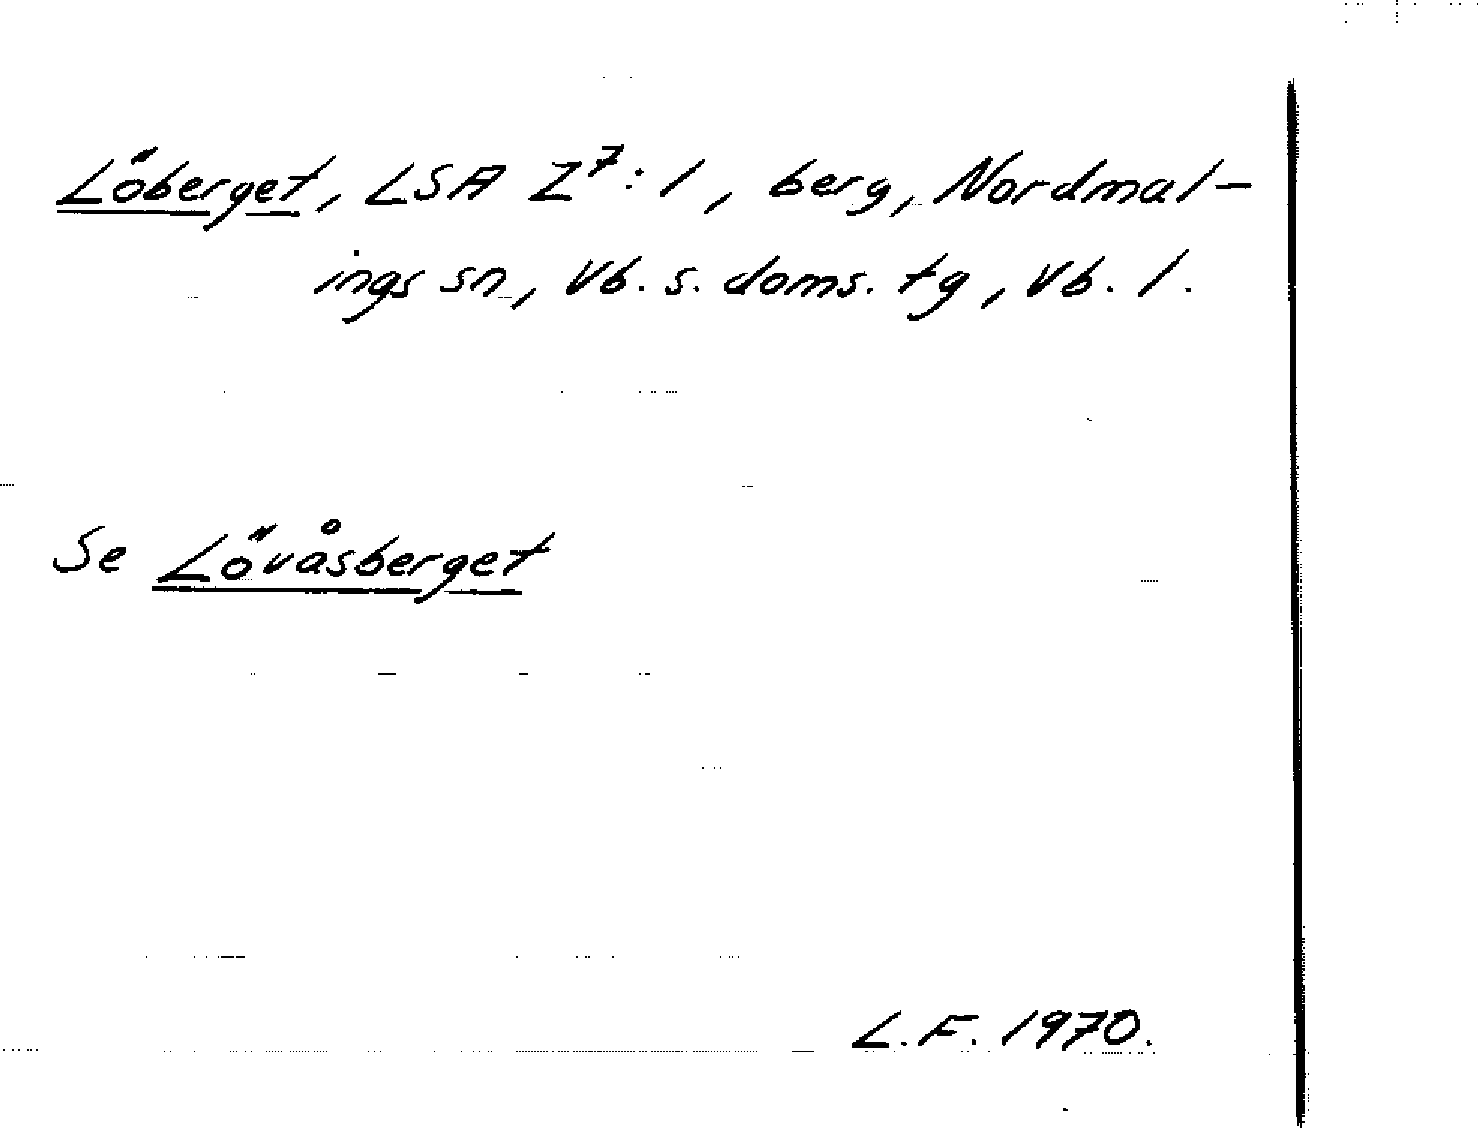 Löberget, LSA Z⁷: 1, berg, Nordmal-
ings sn, Vb. s. doms. tg, Vb. l.
Se Lövåsberget
L.F. 1970.